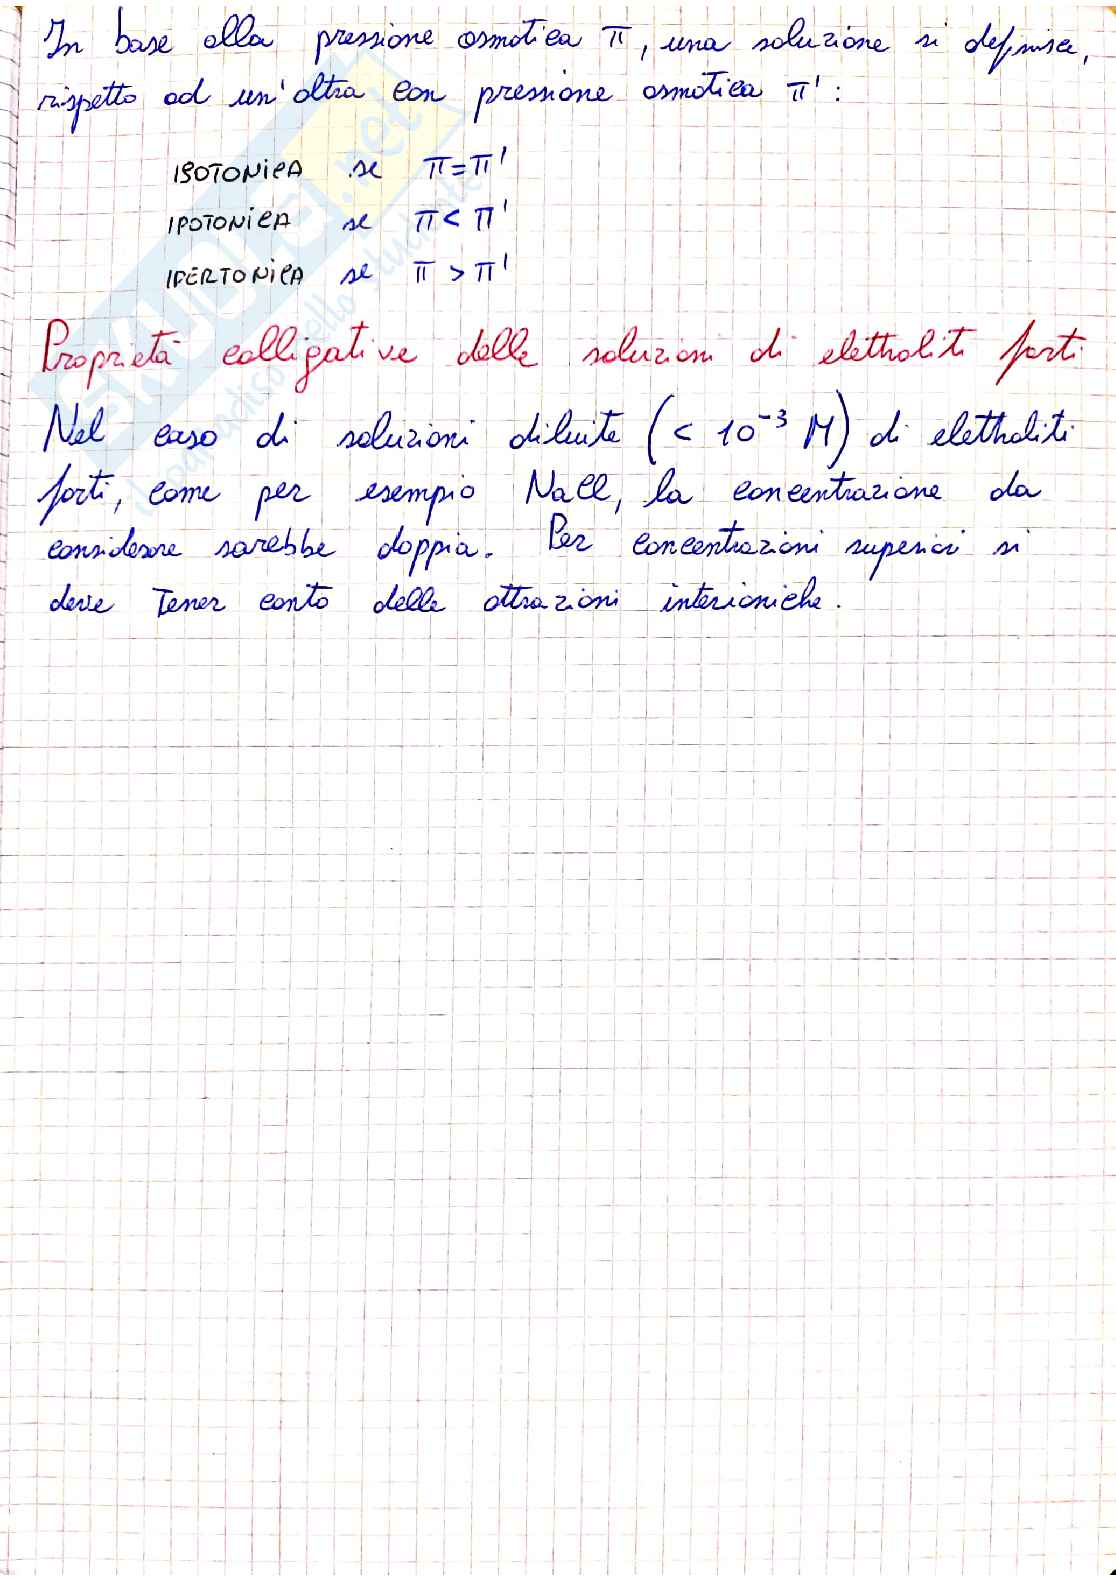 In base alla pressione osmotica π, una soluzione si definisce,
rispetto ad un'altra con pressione osmotica π':
ISOTONICA se π=π'
IPOTONICA se π< π'
IPERTONICA se π > π'
Proprietà colligative delle soluzioni di elettroliti forti
Nel caso di soluzioni diluite (< 10⁻³ M) di elettroliti
forti, come per esempio NaCl, la concentrazione da
considerare sarebbe doppia. Per concentrazioni superiori si
deve tener conto delle attrazioni interioniche.